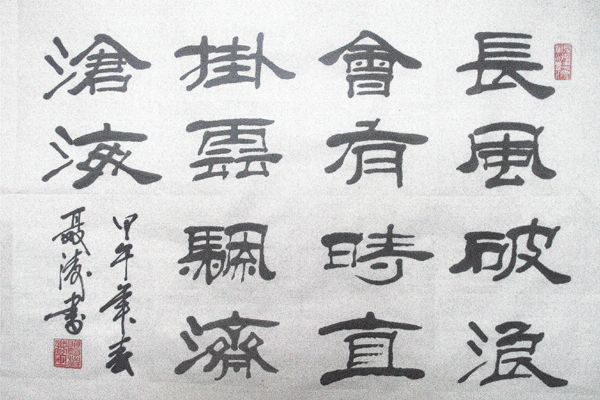 長風破浪
會有時直
掛雲颿濟
滄海
甲午年春
聂涛書